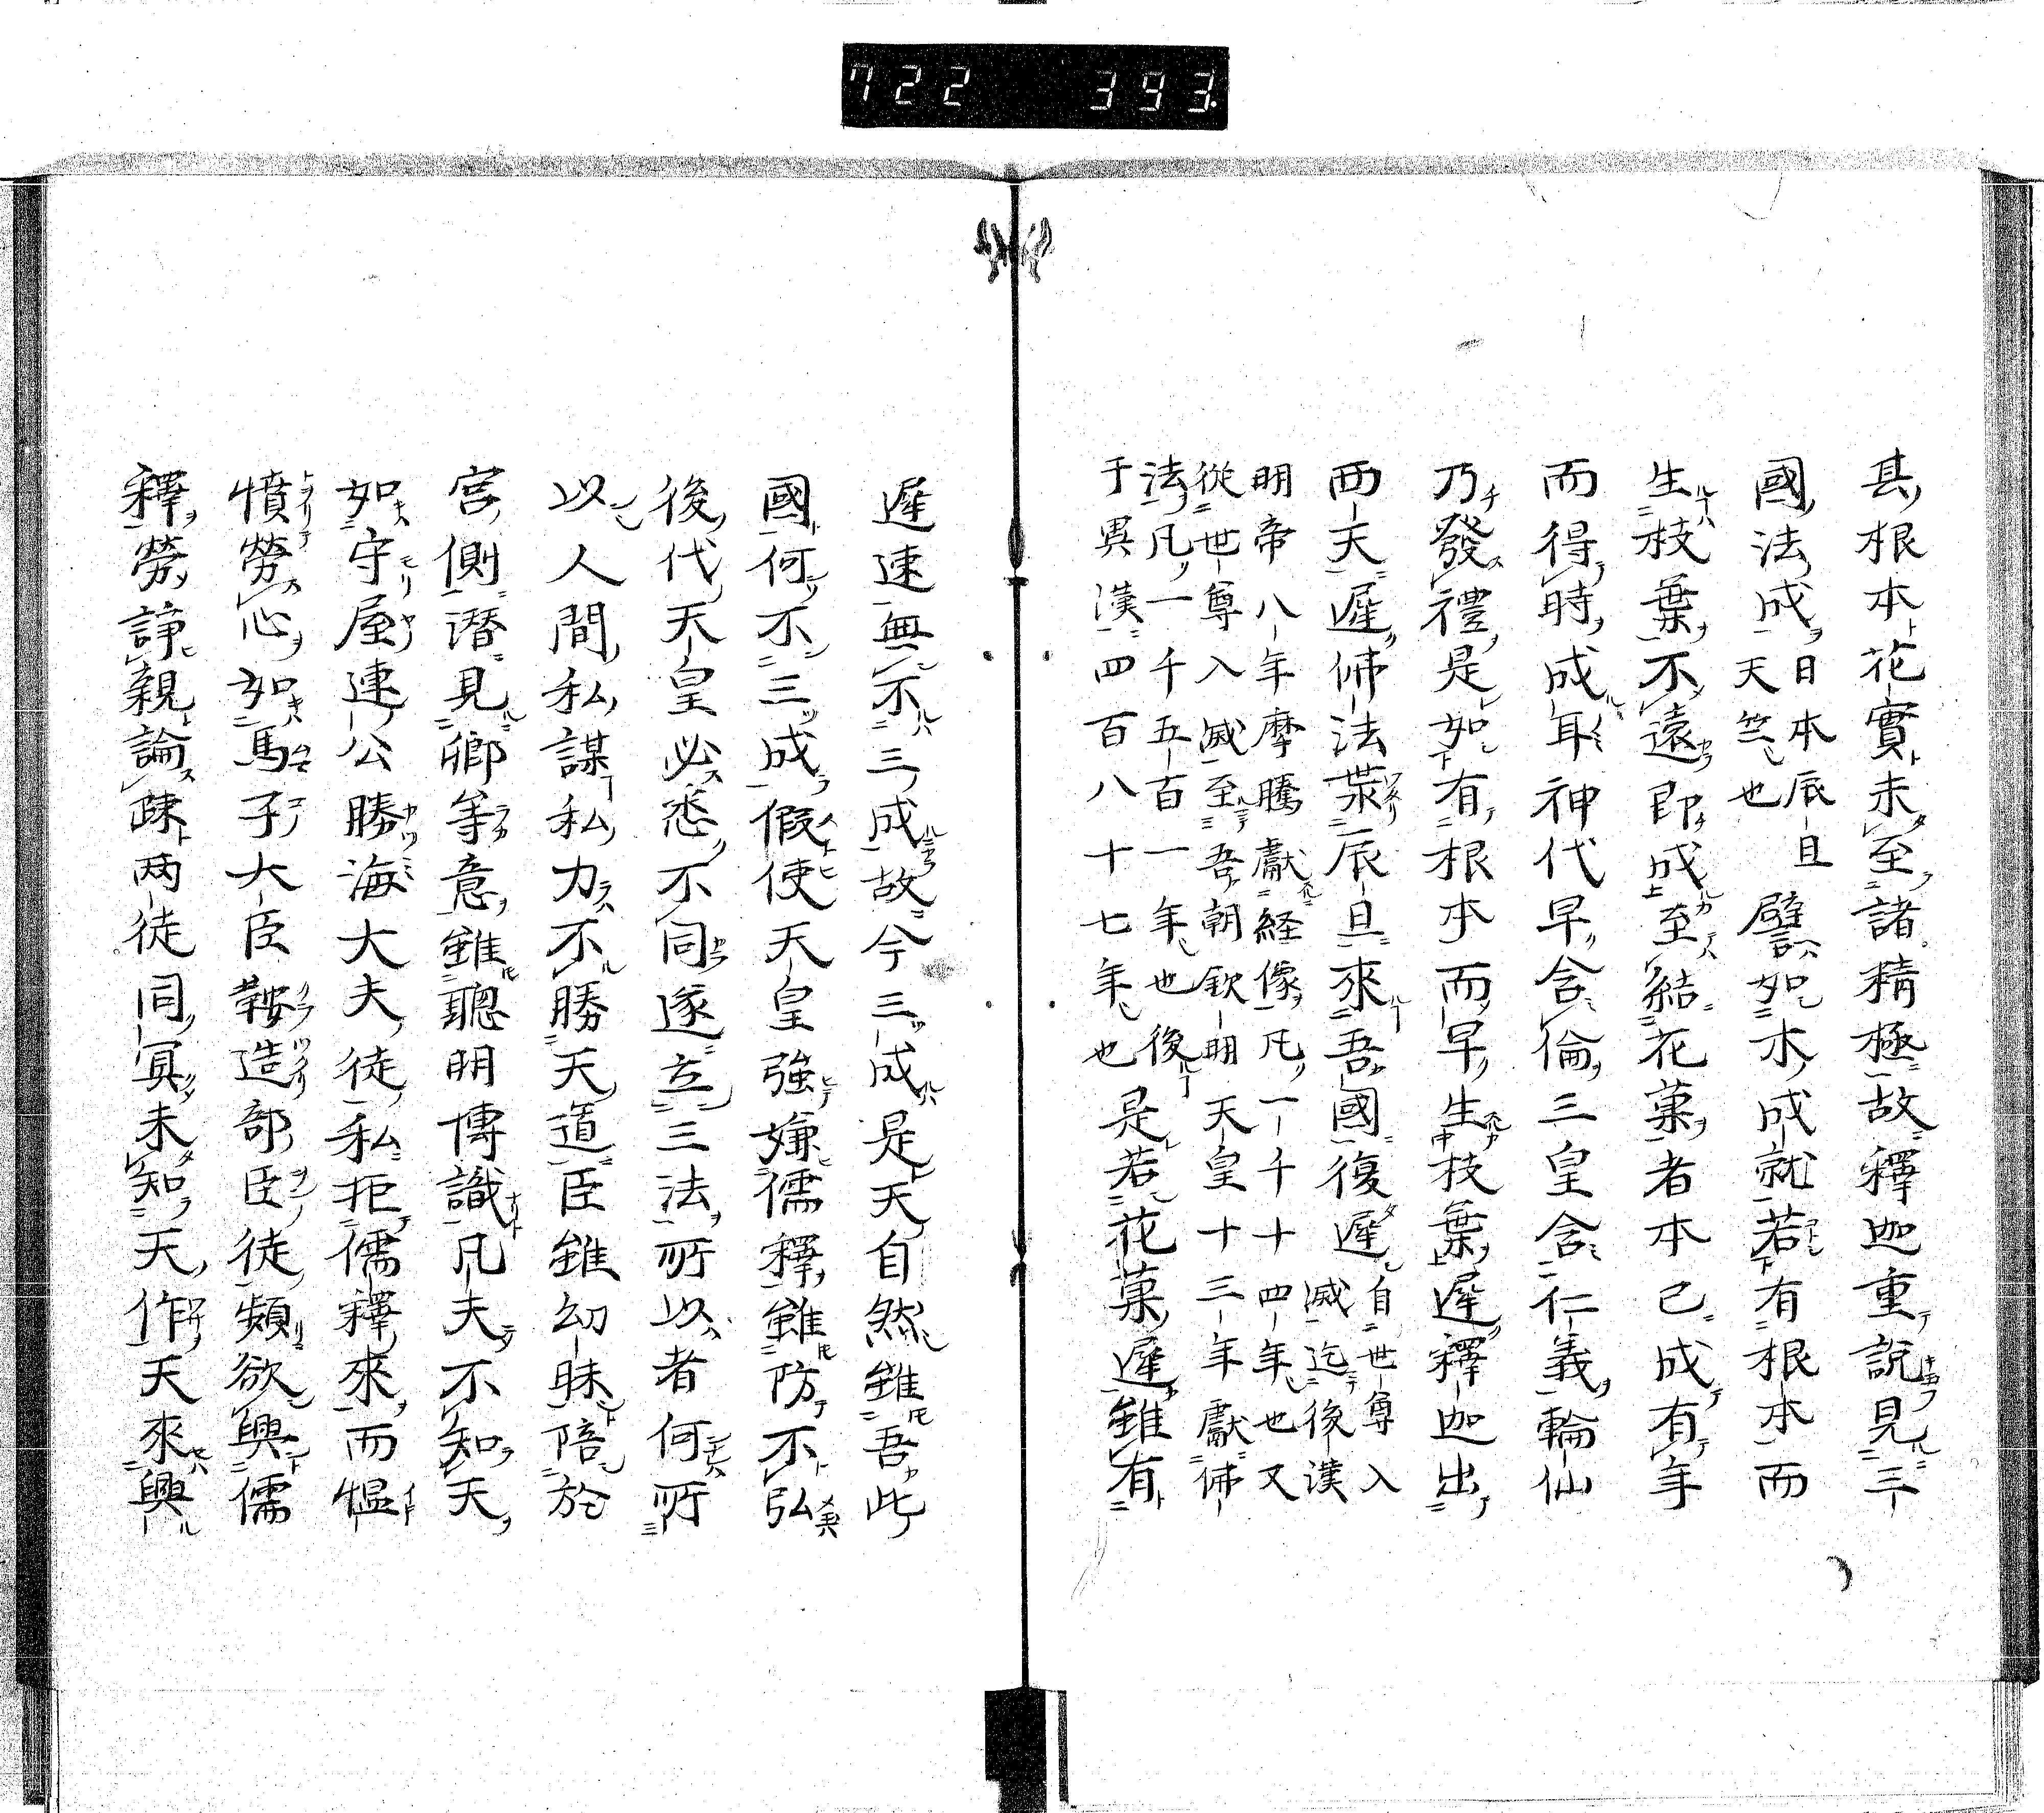 722 393
其根本花實未至諸精極故釋迦重說見三
國法成日本辰旦天竺也譬如木成就若有根本而
生枝葉不遠即成至結花菓者本已成有年
而得時成耳神代早含倫三皇含仁義輪仙
乃發禮是如有根本而早生枝葉遲釋迦出
西天遲佛法葉辰旦來吾國復遲自世尊入
滅迄後漢
明帝八年摩騰獻経像凡一千十四年也又
從世尊入滅至吾朝欽明天皇十三年獻佛
法凡一千五百一年也後
于異漢四百八十七年也是若花菓遲雖有
遲速無不三成故今三成是天自然雖吾此
國何不三成假使天皇強嫌儒釋雖防不弘
後代天皇必悉不同遂立三法所以者何所
以人間私謀私力不勝天道臣雖幼昧陪於
宮側潛見卿等意雖聰明博識凡夫不知天
如守屋連公勝海大夫徒私拒儒釋來而慍
憤勞心如馬子大臣鞍造部臣徒頻欲興儒
釋勞諍親論疎两徒同冥未知天作天來興